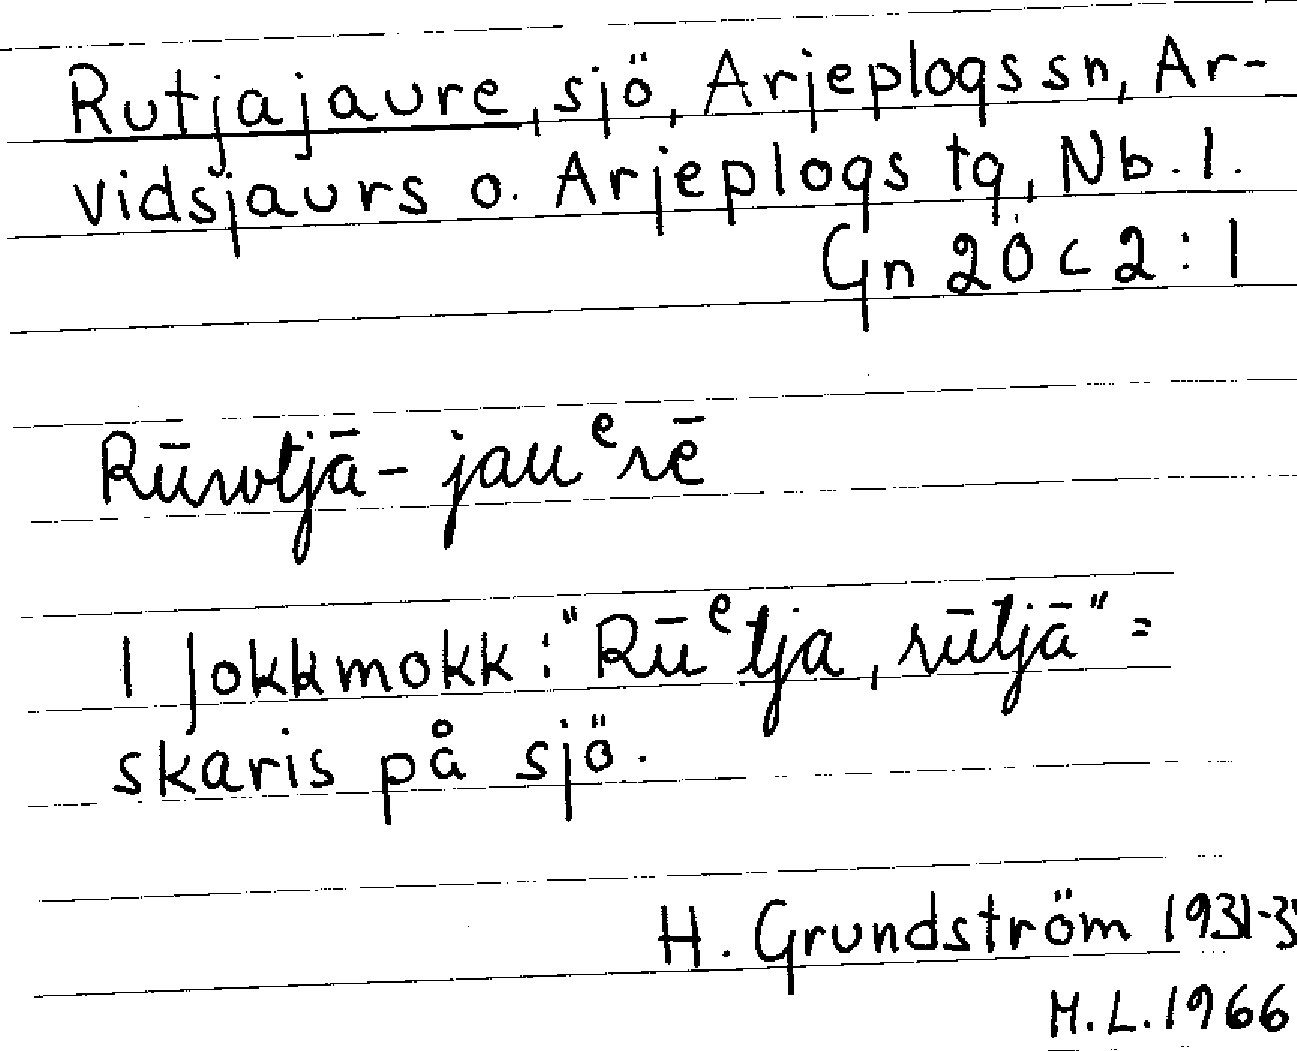 Rutjajaure, sjö, Arjeplogs sn, Ar-
vidsjaurs o. Arjeplogs tg, Nb. l.
Gn 20 c 2:1
Rūwtjā-jauᵉrē
I Jokkmokk: "Rūᵉtja, rūtjā" =
skaris på sjö.
H. Grundström 1931-3
H.L. 1966